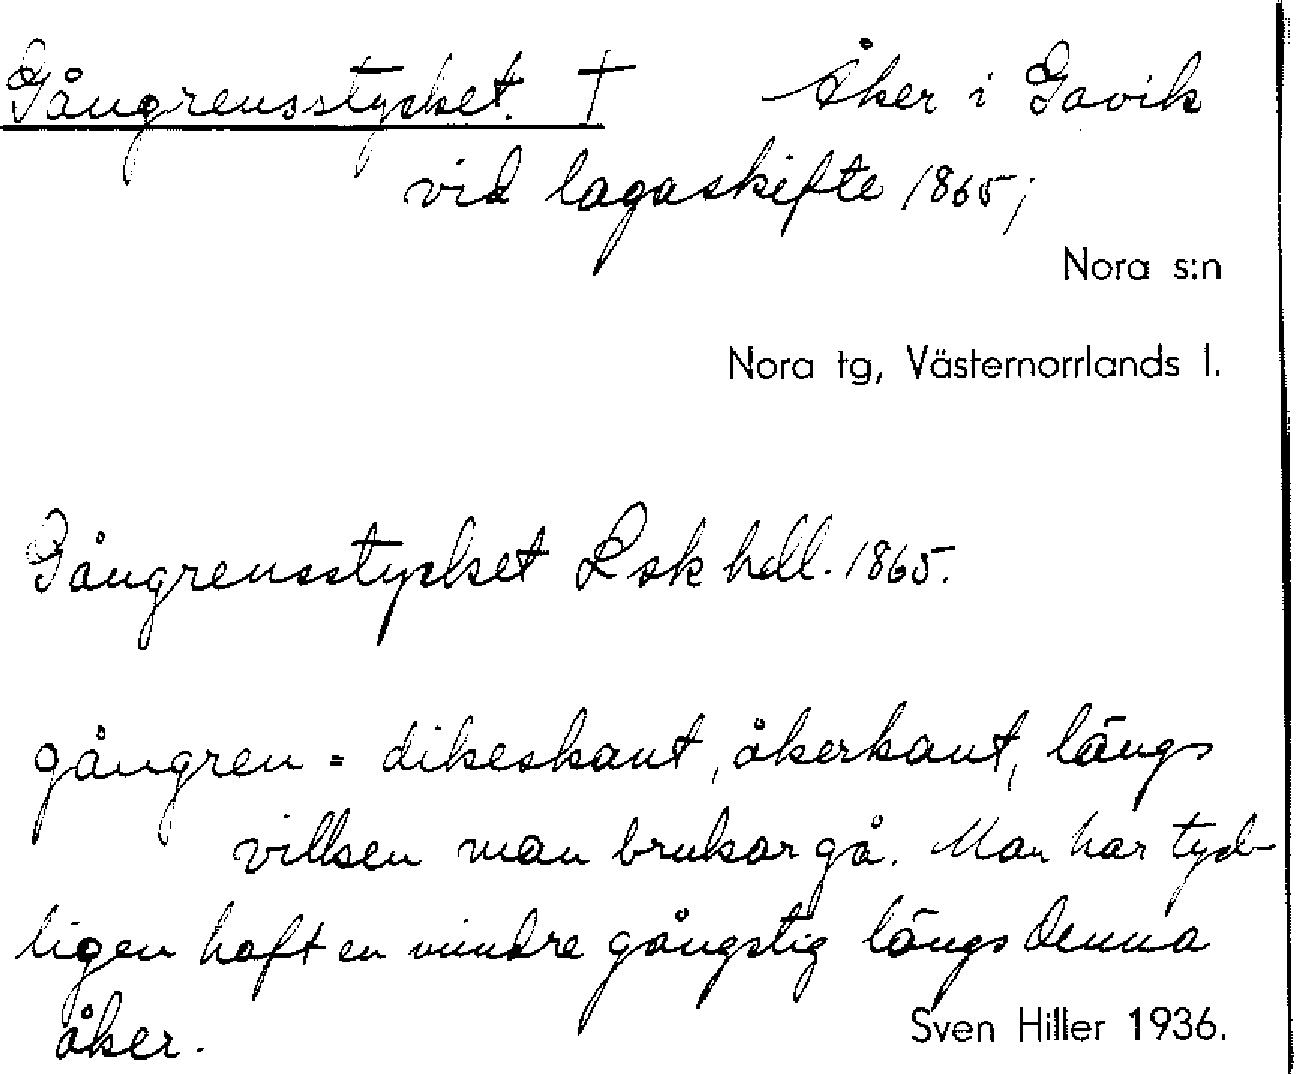 Gångrensstycket. † Åker i Gavik
vid lagaskifte 1865;
Nora s:n
Nora tg, Västernorrlands l.
Gångrensstycket Lskhdl. 1865.
gångren = dikeskant, åkerkant, längs
vilken man brukar gå. Man har tyd-
ligen haft en mindre gångstig längs denna
åker.
Sven Hiller 1936.